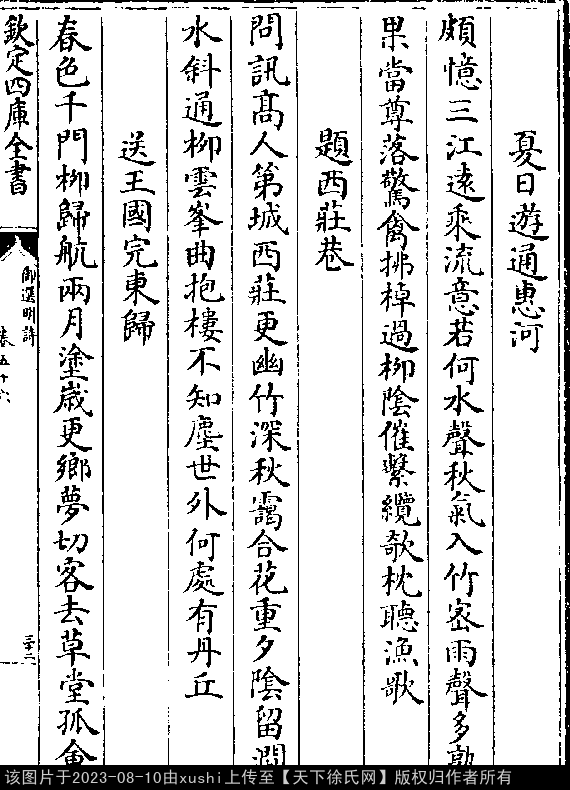 夏日遊通惠河
頗憶三江遠乘流意若何水聲秋氣入竹密雨聲多熟
果當尊落驚禽拂棹過柳陰催繫纜欹枕聽漁歌
題西莊巷
問訊髙人第城西莊更幽竹深秋靄合花重夕陰留澗
水斜通柳雲峯曲抱樓不知塵世外何處有丹丘
送王國完東歸
春色千門柳歸航兩月塗嵗更鄉夢切客去草堂孤會
欽定四庫全書
御選明詩
卷五十六
三十二
该图片于2023-08-10由xushi上传至【天下徐氏网】版权归作者所有